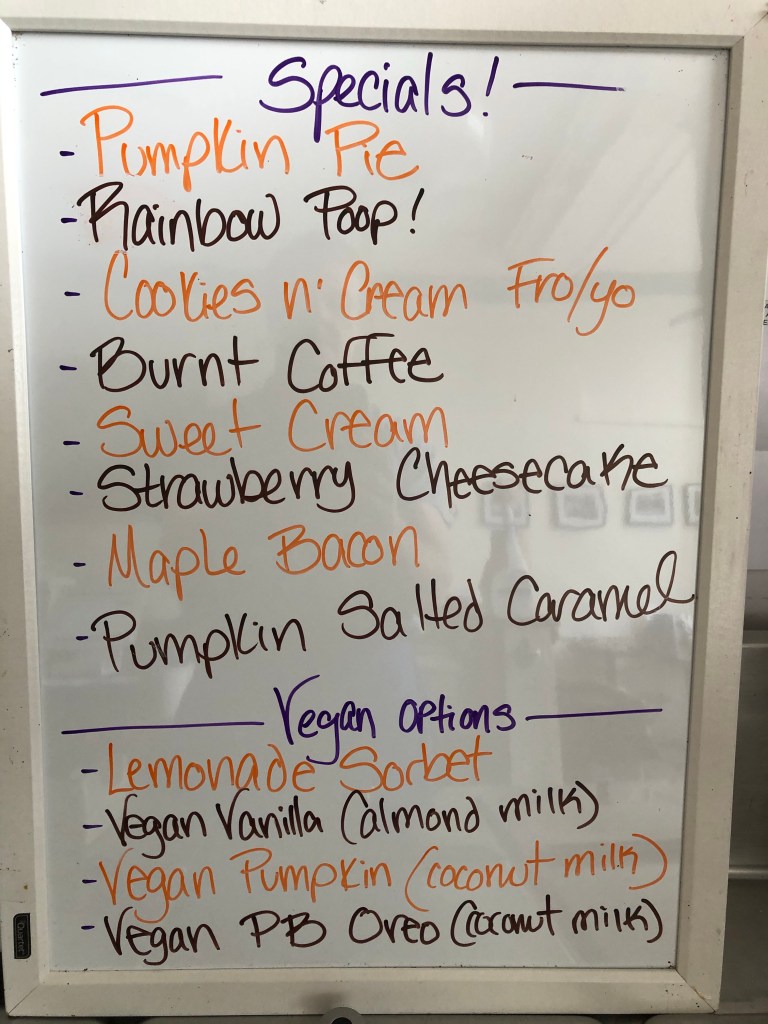 Specials!
- Pumpkin Pie
- Rainbow Poop!
- Cookies n' Cream Fro/yo
- Burnt Coffee
- Sweet Cream
- Strawberry Cheesecake
- Maple Bacon
- Pumpkin Salted Caramel
Vegan Options
- Lemonade Sorbet
- Vegan Vanilla (almond milk)
- Vegan Pumpkin (coconut milk)
- Vegan PB Oreo (coconut milk)
Quartet